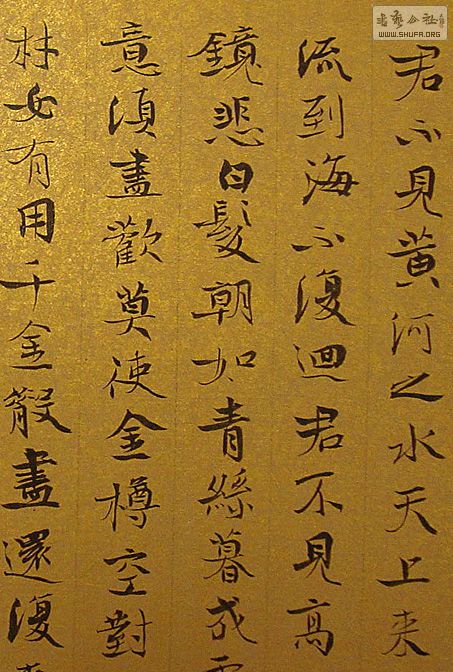 書藝公社
WWW.SHUFA.ORG
君不見黄河之水天上来
流到海不復迴君不見高
鏡悲白髮朝如青絲暮成
意須盡歡莫使金樽空對
材必有用千金散盡還復